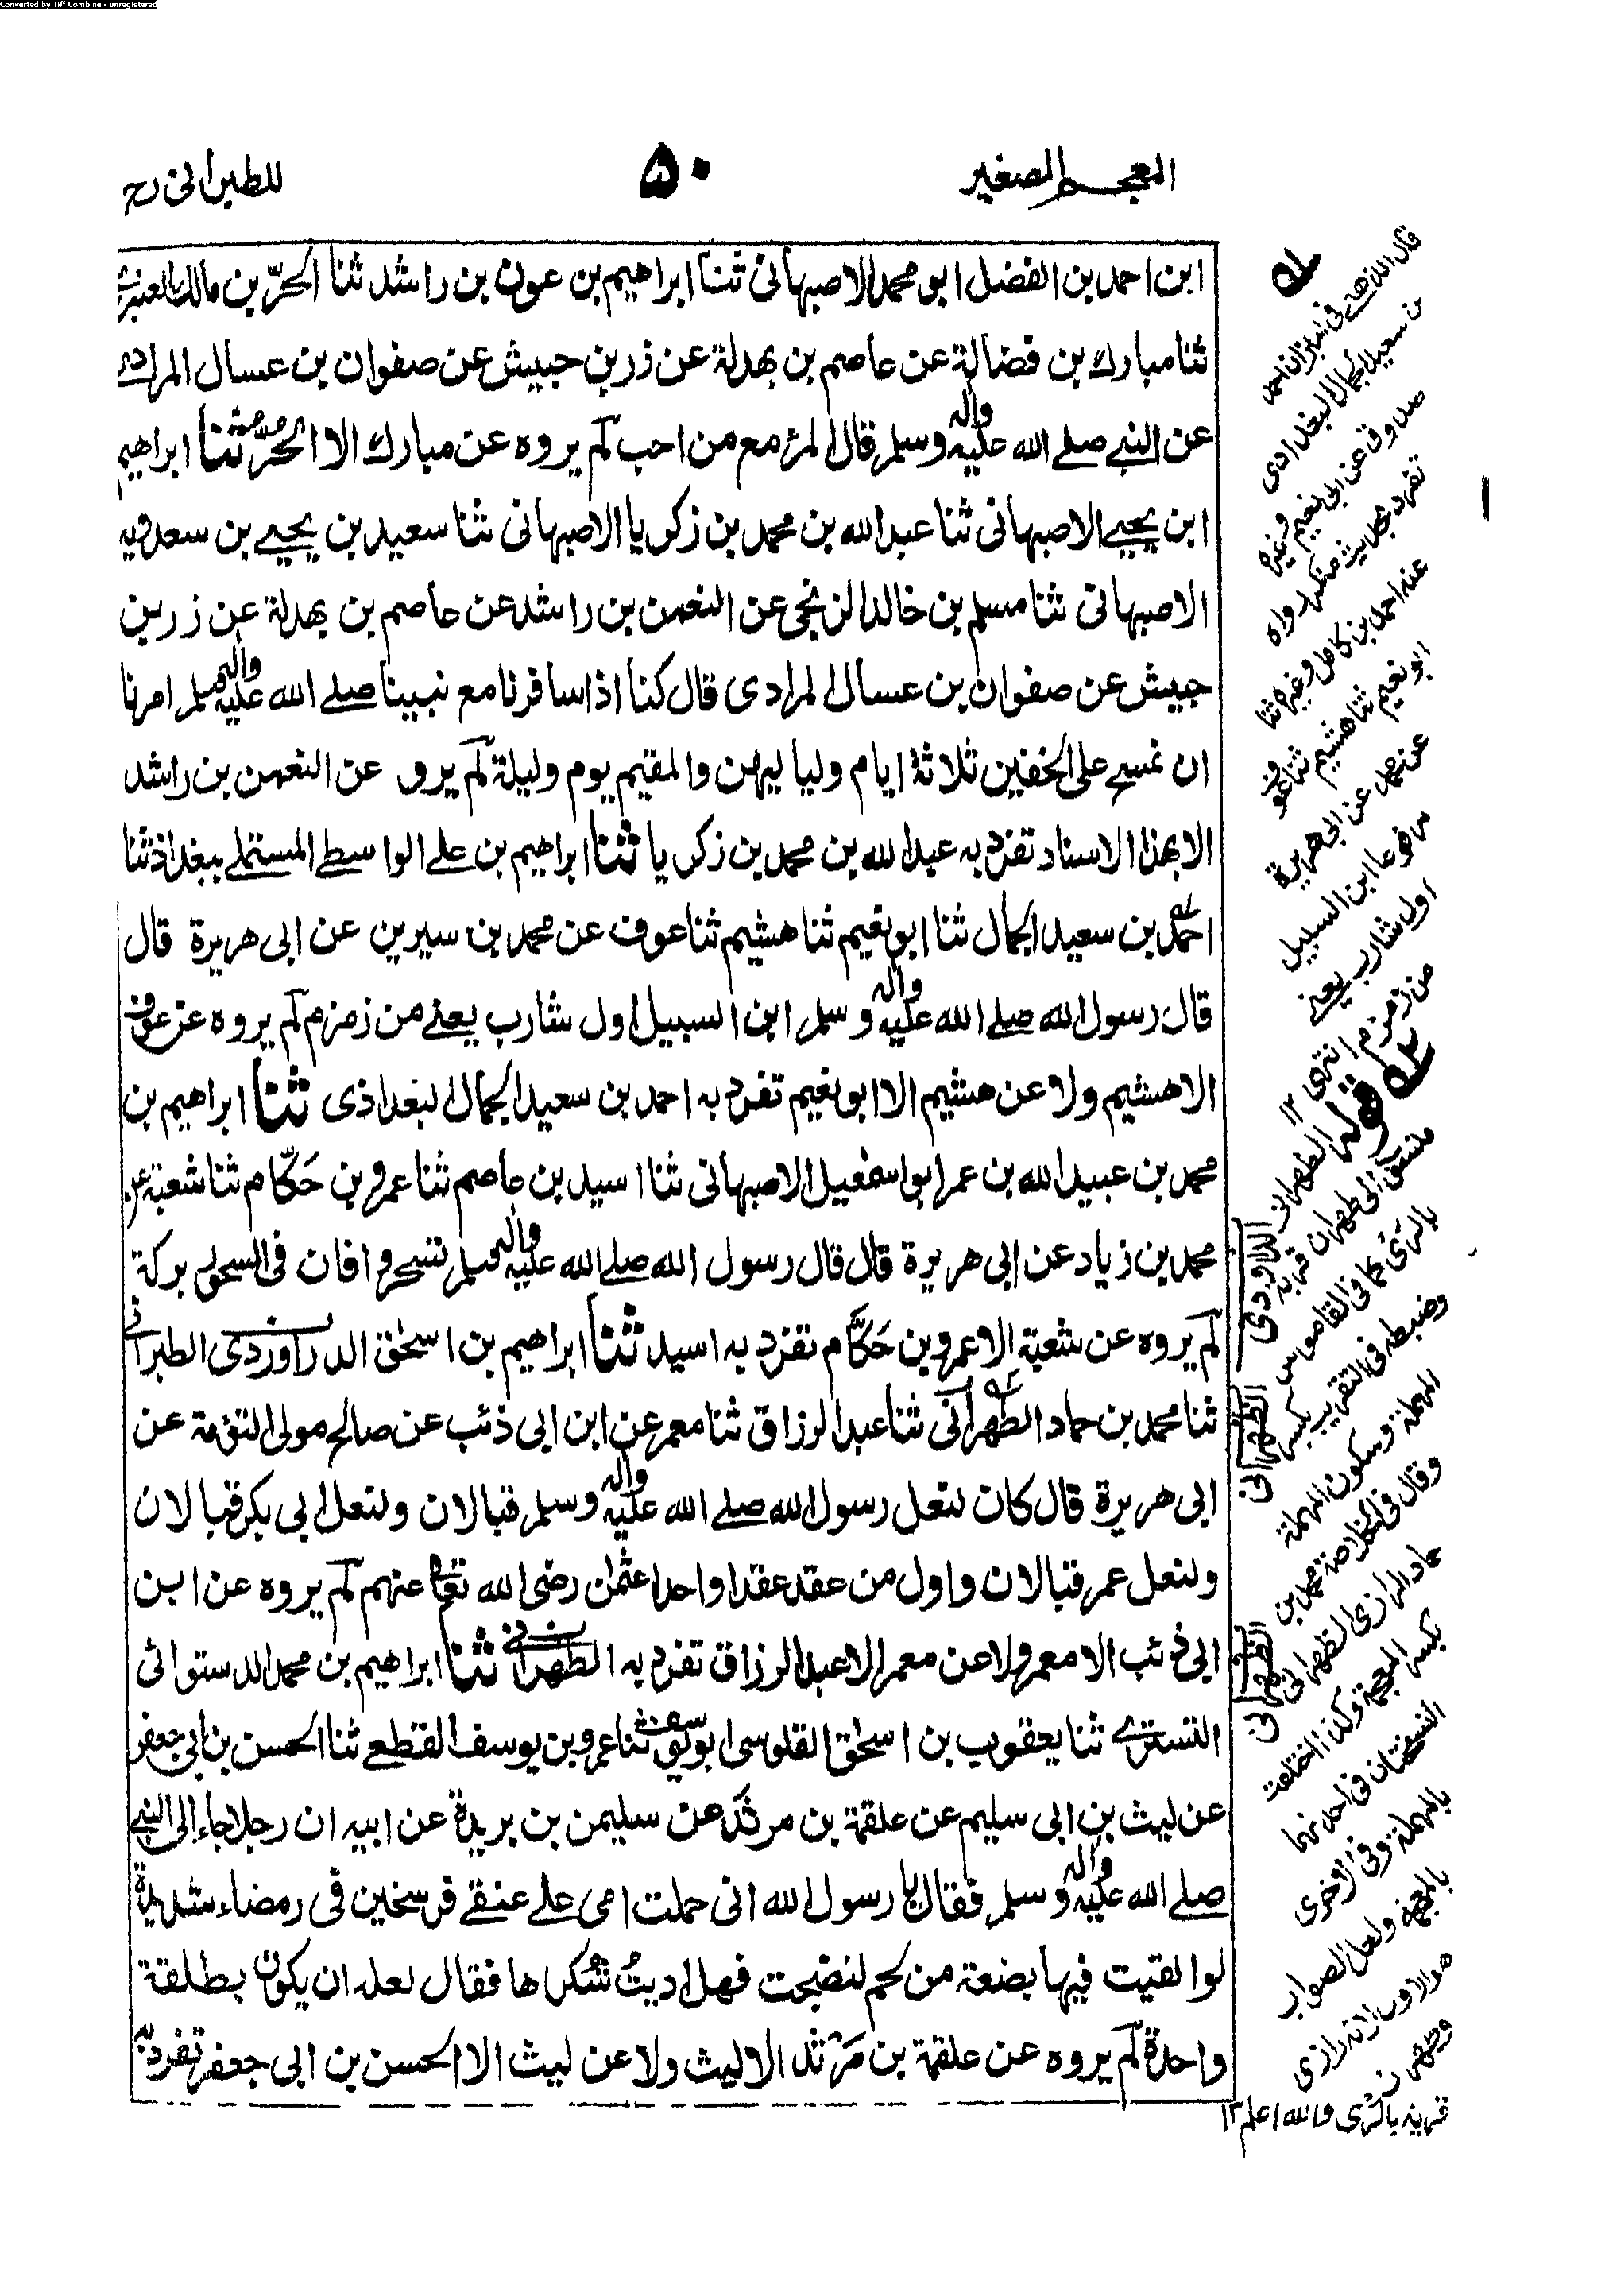 Converted by Tiff Combine - unregistered
المعجم الصغير
۵۰
للطبرانی رح
ابن احمد بن الفضل ابو محمد الاصبهانی ثنا ابراهيم بن عون بن راشد ثنا الحرّ بن مالك العنبری
ثنا مبارك بن فضالة عن عاصم بن بهدلة عن زر بن حبيش عن صفوان بن عسال المرادی
عن النبے صلے الله عليه واٰله وسلم قال المرٔ مع من احب لم يروه عن مبارك الا الحرّ ثنا ابراهيم
ابن يحيے الاصبهانی ثنا عبد الله بن محمد بن زكريا الاصبهانی ثنا سعيد بن يحيے بن سعدويه
الاصبهانی ثنا مسلم بن خالد الزنجی عن النعمٰن بن راشد عن عاصم بن بهدلة عن زر بن
حبيش عن صفوان بن عسال المرادی قال كنا اذا سافرنا مع نبينا صلے الله عليه واٰله وسلم امرنا
ان نمسح علی الخفين ثلاثة ايام ولياليهن والمقيم يوم وليلة لم يرو عن النعمٰن بن راشد
الا بهذا الاسناد تفرد به عبد الله بن محمد بن زكريا ثنا ابراهيم بن علے الواسطے المستملے ببغداذ ثنا
احمد بن سعيد الجمال ثنا ابو نعيم ثنا هشيم ثنا عوف عن محمد بن سيرين عن ابی هريرة قال
قال رسول الله صلے الله عليه واٰله وسلم ابن السبيل اول شارب يعنے من زمزم لم يروه عن عوف
الا هشيم ولا عن هشيم الا ابو نعيم تفرد به احمد بن سعيد الجمال البغداذی ثنا ابراهيم بن
محمد بن عبيد الله بن عمر ابو اسمٰعيل الاصبهانی ثنا اسيد بن عاصم ثنا عمرو بن حَكّام ثنا شعبة عن
محمد بن زياد عن ابی هريرة قال قال رسول الله صلے الله عليه واٰله وسلم تسحروا فان فی السحور بركة
لم يروه عن شعبة الا عمرو بن حَكّام تفرد به اسيد ثنا ابراهيم بن اسحٰق الدراوردی الطبرانی
ثنا محمد بن حماد الطهرانی ثنا عبد الرزاق ثنا معمر عن ابن ابی ذئب عن صالح مولی التؤمة عن
ابی هريرة قال كان لنعل رسول الله صلے الله عليه واٰله وسلم قبالان ولنعل ابی بكر قبالان
ولنعل عمر قبالان واول من عقد عقدا واحدا عثمٰن رضی الله تعٰ عنهم لم يروه عن ابن
ابی ذئب الا معمر ولا عن معمر الا عبد الرزاق تفرد به الطهرانی ثنا ابراهيم بن محمد الدستوائی
التستری ثنا يعقوب بن اسحٰق القلوسی ابو يوسف ثنا عمرو بن يوسف القطعے ثنا الحسن بن ابی جعفر
عن ليث بن ابی سليم عن علقمة بن مرثد عن سليمٰن بن بريدة عن ابيه ان رجلا جاء الی النبے
صلے الله عليه واٰله وسلم فقال يا رسول الله انی حملت امی علے عنقے فرسخين فی رمضاء شديدة
لو القيت فيها بضعة من لحم لنضجت فهل اديتُ شكرها فقال لعله ان يكون بطلقة
واحدة لم يروه عن علقمة بن مَرْثد الا ليث ولا عن ليث الا الحسن بن ابی جعفر تفرد به
قال الذهبے فی الميزان احمد
بن سعيد الجمال البغدادی
صدوق عن ابی نعيم وغيره
تفرد بحديث منكر رواه
عنه احمد بن كامل وغيره ثنا
ابو نعيم ثنا هشيم ثنا عوف
عن محمد عن ابی هريرة
مرفوعا ابن السبيل
اول شارب يعنے
من زمزم انتهی ١٢
قوله الطهرانی
منسوب الی طهران قرية
بالری كما فی القاموس
وضبطه فی التقريب بكسر
المهملة وسكون الهملة
وقال فی الخلاصة محمد بن
حماد الرازی الظهرانی
بكسر المعجمة وكذا اختلفت
النسختان فی احدٰهما
بالمهملة وفی الاخری
بالمعجمة ولعل الصواب
هو الاول لانه رازی
وطهران
قرية بالری والله اعلم ١٢
الداودی
الظهرانی
الظهرانی